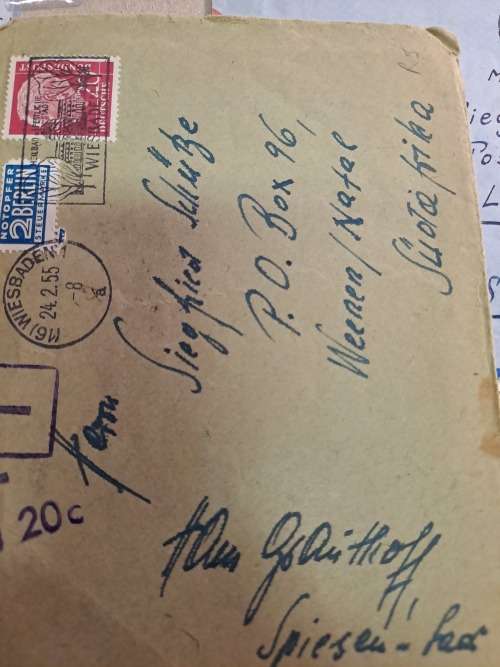 DEUTSCHE
BUNDESPOST
20
WIESBADEN
NOTOPFER
2 BERLIN
STEUERMARKE
(16) WIESBADEN
24.2.55 -8
a
Herrn
Siegfried Schütze
P.O. Box 96,
Weenen/Natal
Südafrika
20c
Spiesen-Saar